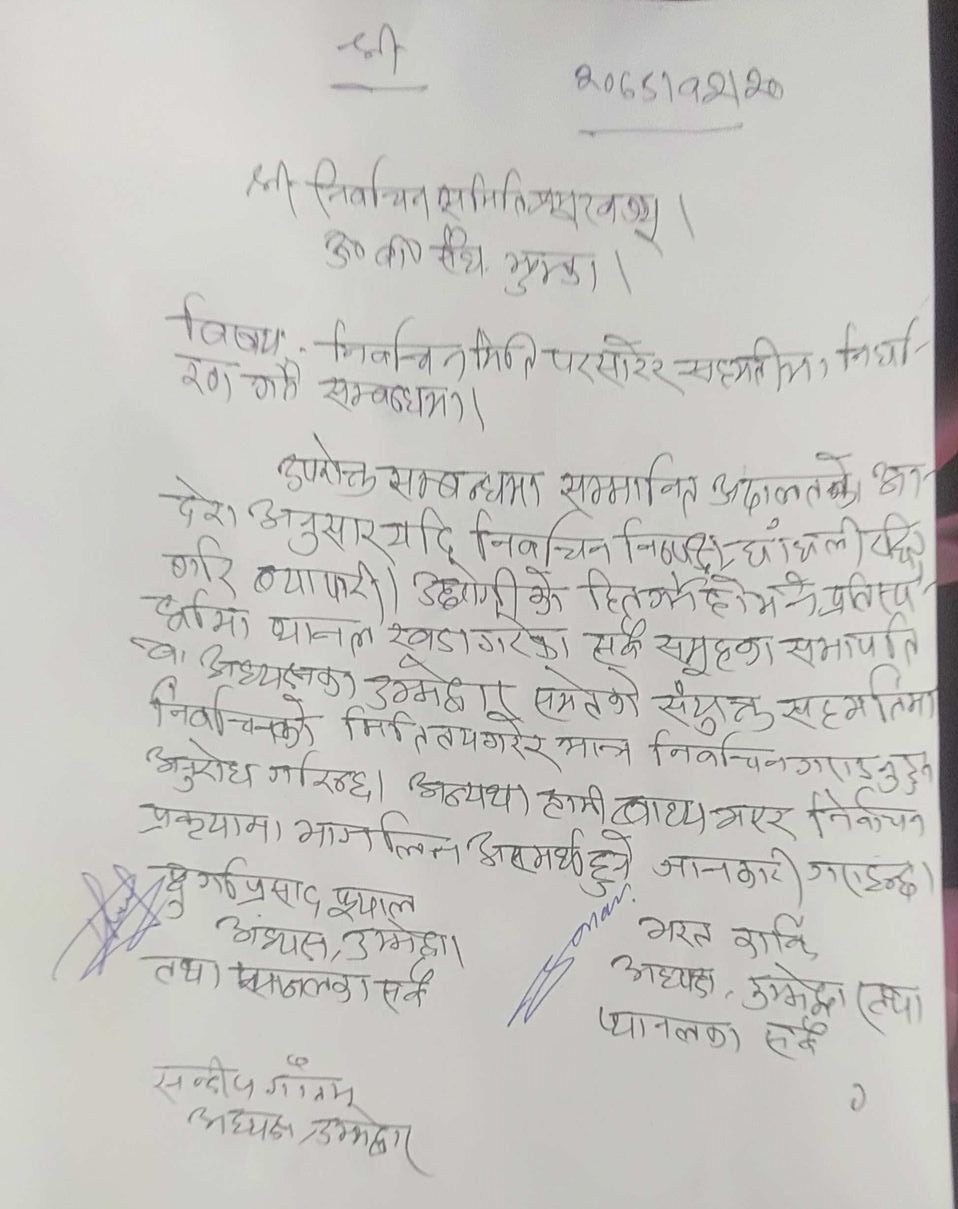 श्री
२०८१।१२।२०
श्री निर्वाचन समिति
उ० वा० संघ
विषय: निर्वाचन मिति पर सारेर सहमतीमा निर्धा-
रण गर्ने सम्बन्धमा।
उपरोक्त सम्बन्धमा सम्मानित अदालतको आ-
देश अनुसार यदि निर्वाचन निष्पक्ष, धाँधली रहित
गरि व्यापारी। उद्योगीको हित गर्ने हो भने प्रतिस्प-
र्धामा प्यानल खडा गरेका सबै समूहका सभापति
वा अध्यक्षका उम्मेद्वार समेतको संयुक्त सहमतिमा
निर्वाचनको मिति तय गरेर मात्र निर्वाचन गराइनुहुन
अनुरोध गरिन्छ। अन्यथा हामी बाध्य भएर निर्वाचन
प्रकृयामा भाग लिन असमर्थ हुने जानकारी गराइन्छ।
दुर्गा प्रसाद फूयाल
अध्यक्ष, उम्मेद्वार
तथा प्यानलका सबै
भरत कार्की
अध्यक्ष, उम्मेद्वार तथा
प्यानलका सबै
सन्दीप गौतम
अध्यक्ष, उम्मेद्वार